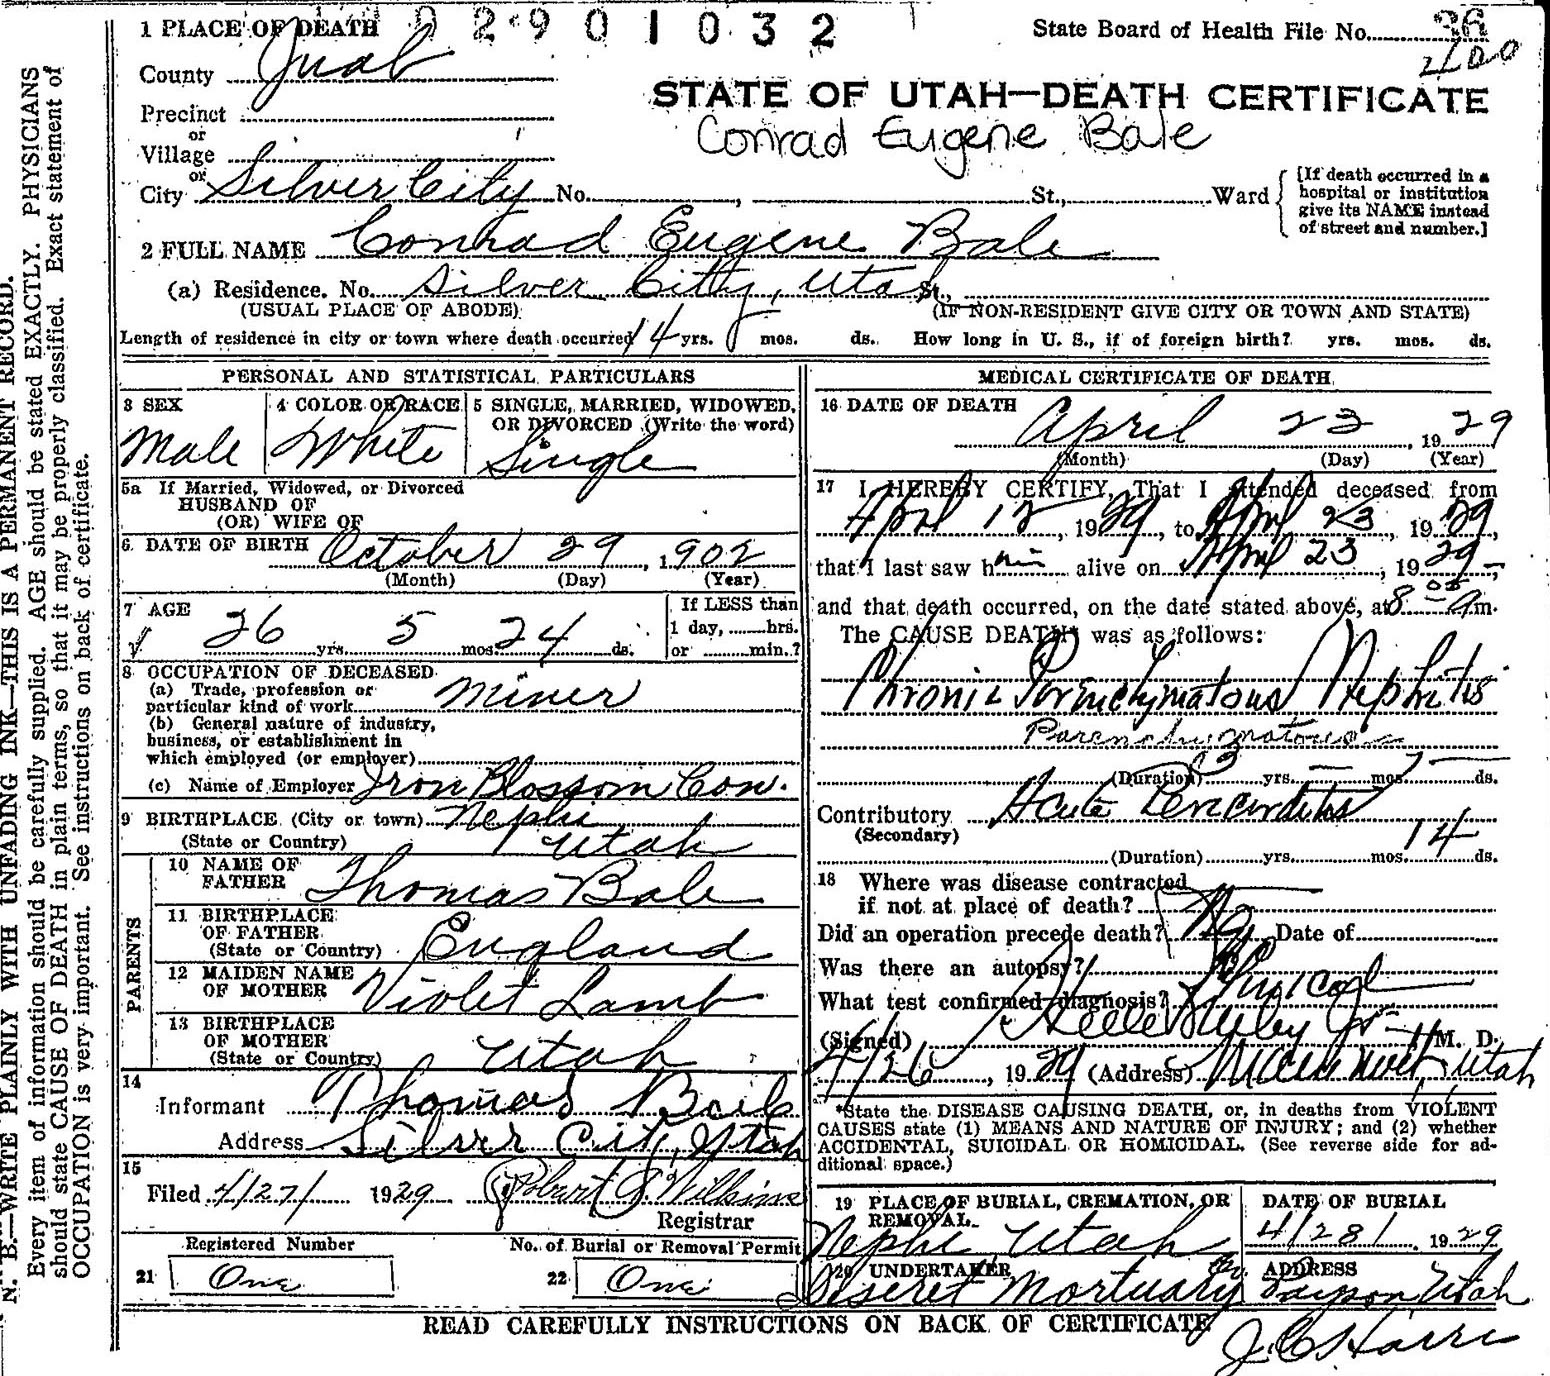 1 PLACE OF DEATH 02901032
State Board of Health File No.
400
County Juab
STATE OF UTAH—DEATH CERTIFICATE
Precinct
or
Conrad Eugene Bale
Village
or
City Silver City No. , St., Ward
[If death occurred in a
hospital or institution
give its NAME instead
of street and number.]
2 FULL NAME Conrad Eugene Bale
(a) Residence. No. Silver Citty, Utah St.,
(USUAL PLACE OF ABODE) (IF NON-RESIDENT GIVE CITY OR TOWN AND STATE)
Length of residence in city or town where death occurred 14 yrs. mos. ds. How long in U. S., if of foreign birth? yrs. mos. ds.
PERSONAL AND STATISTICAL PARTICULARS
3 SEX
Male
4 COLOR OR RACE
White
5 SINGLE, MARRIED, WIDOWED,
OR DIVORCED (Write the word)
Single
5a If Married, Widowed, or Divorced
HUSBAND OF
(OR) WIFE OF
6 DATE OF BIRTH October 29, 1902
(Month) (Day) (Year)
7 AGE
26 yrs. 5 mos. 24 ds.
If LESS than
1 day, hrs.
or min.?
8 OCCUPATION OF DECEASED
(a) Trade, profession or
particular kind of work Miner
(b) General nature of industry,
business, or establishment in
which employed (or employer)
(c) Name of Employer Iron Blossom Con.
9 BIRTHPLACE (City or town) Nephi
(State or Country) Utah
PARENTS
10 NAME OF
FATHER Thomas Bale
11 BIRTHPLACE
OF FATHER
(State or Country) England
12 MAIDEN NAME
OF MOTHER Violet Lamb
13 BIRTHPLACE
OF MOTHER
(State or Country) Utah
14
Informant Thomas Bale
Address Silver City, Utah
15
Filed 4/27/ 1929 Robert J. Wilkins
Registrar
Registered Number No. of Burial or Removal Permit
21 One 22 One
MEDICAL CERTIFICATE OF DEATH
16 DATE OF DEATH
April 23, 1929
(Month) (Day) (Year)
17 I HEREBY CERTIFY, That I attended deceased from
April 12, 1929, to April 23, 1929,
that I last saw him alive on April 23, 1929,
and that death occurred, on the date stated above, at 8 05 a m.
The CAUSE DEATH* was as follows:
Chronic Parenchymatous Nephritis
Parenchymatous
(Duration) 3 yrs. — mos. — ds.
Contributory Acute Pericarditis
(Secondary)
(Duration) yrs. mos. 14 ds.
18 Where was disease contracted
if not at place of death?
Did an operation precede death? No Date of
Was there an autopsy?
What test confirmed diagnosis?
(Signed) M. D.
4/26, 1929 (Address) Utah
*State the DISEASE CAUSING DEATH, or, in deaths from VIOLENT
CAUSES state (1) MEANS AND NATURE OF INJURY; and (2) whether
ACCIDENTAL, SUICIDAL OR HOMICIDAL. (See reverse side for ad-
ditional space.)
19 PLACE OF BURIAL, CREMATION, OR
REMOVAL
Nephi Utah
DATE OF BURIAL
4/28/ 1929
20 UNDERTAKER
Deseret Mortuary
ADDRESS
Payson, Utah
READ CAREFULLY INSTRUCTIONS ON BACK OF CERTIFICATE
J. C. Harris
N. B.—WRITE PLAINLY WITH UNFADING INK—THIS IS A PERMANENT RECORD.
Every item of information should be carefully supplied. AGE should be stated EXACTLY. PHYSICIANS
should state CAUSE OF DEATH in plain terms, so that it may be properly classified. Exact statement of
OCCUPATION is very important. See instructions on back of certificate.